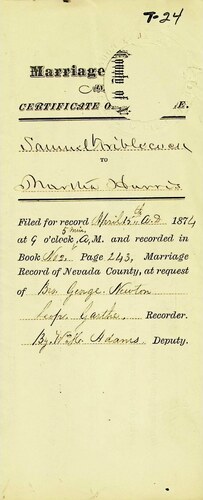 T-24
Marriage
County of N
CERTIFICATE O E.
Samuel
TO
Martha Harris
Filed for record April 15th A.D 1874
at 9 o'clock, 5 min, A, M. and recorded in
Book No 2. Page 243, Marriage
Record of Nevada County, at request
of Rev. George Newton
Geo. Garthe, Recorder.
By Adams. Deputy.